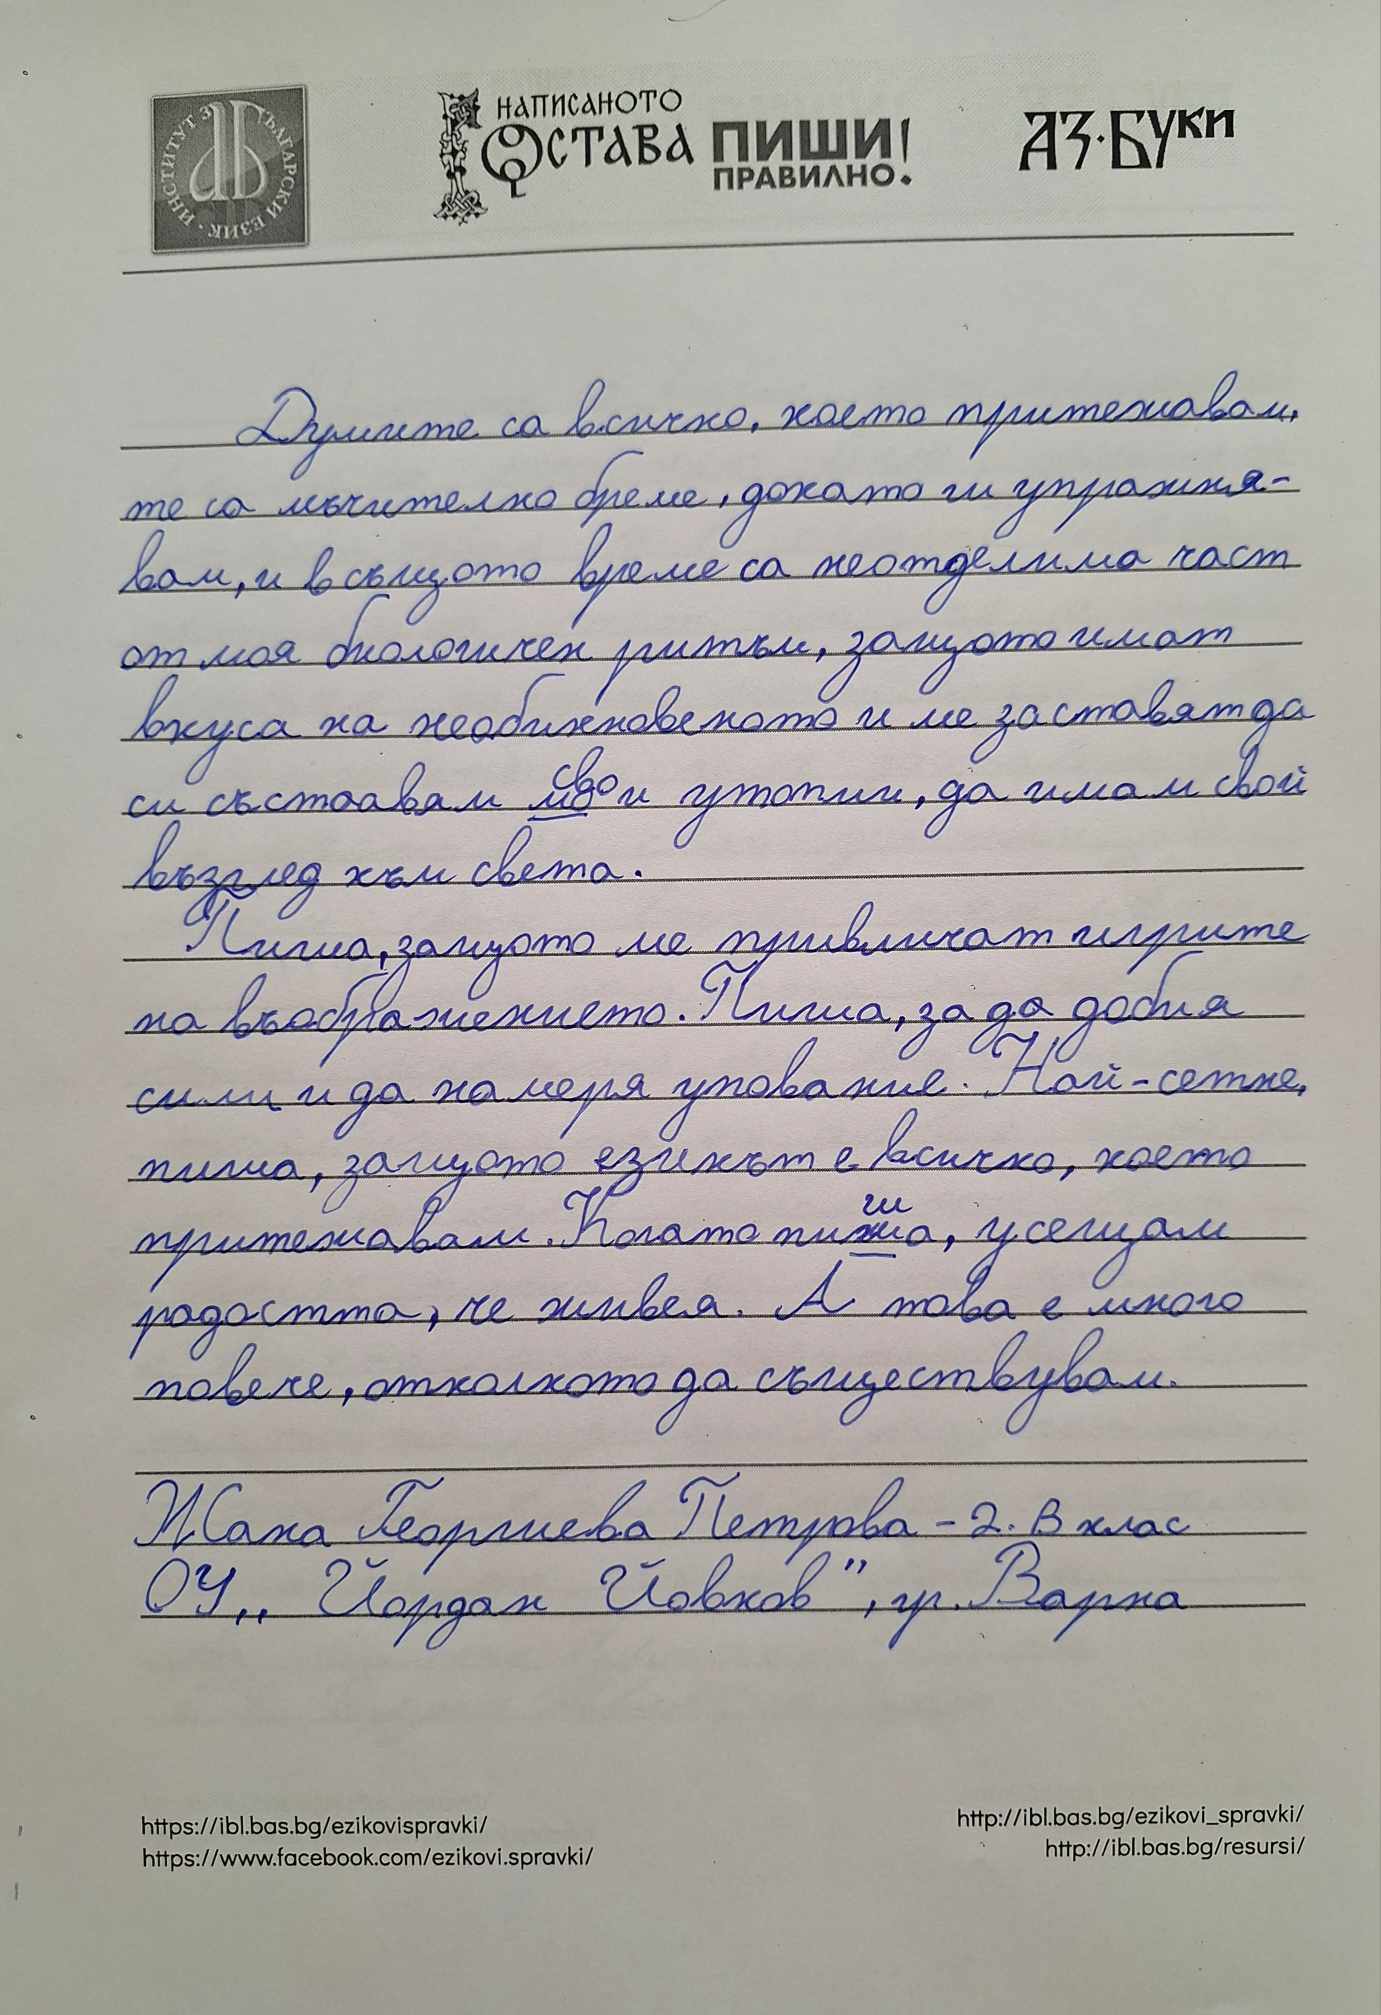 ИНСТИТУТ ЗА БЪЛГАРСКИ ЕЗИК
НАПИСАНОТО
ОСТАВА
ПИШИ
ПРАВИЛНО!
АЗ·БУКИ
Думите са всичко, което притежавам,
те са мъчително бреме, докато ги упражня-
вам, и в същото време са неотделима част
от моя биологичен ритъм, защото имат
вкуса на необикновеното и ме заставят да
си съставам свои утопии, да имам свой
възглед към света.
Пиша, защото ме привличат игрите
на въображението. Пиша, за да добия
сили и да намеря упование. Най-сетне,
пиша, защото езикът е всичко, което
притежавам. Когато пиша, усещам
радостта, че живея. А това е много
повече, отколкото да съществувам.
Жана Георгиева Петрова - 2. В клас
ОУ „Йордан Йовков", гр. Варна
https://ibl.bas.bg/ezikovispravki/
https://www.facebook.com/ezikovi.spravki/
http://ibl.bas.bg/ezikovi_spravki/
http://ibl.bas.bg/resursi/